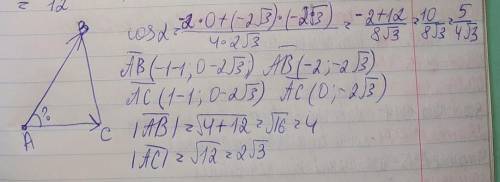 = 12
cos α = (-2·0+(-2√3)·(-2√3))/(4·2√3) = (-2+12)/(8√3) = 10/(8√3) = 5/(4√3)
AB(-1-1; 0-2√3) AB(-2; -2√3)
AC(1-1; 0-2√3) AC(0; -2√3)
|AB| = √(4+12) = √16 = 4
|AC| = √12 = 2√3
B
?
A
C